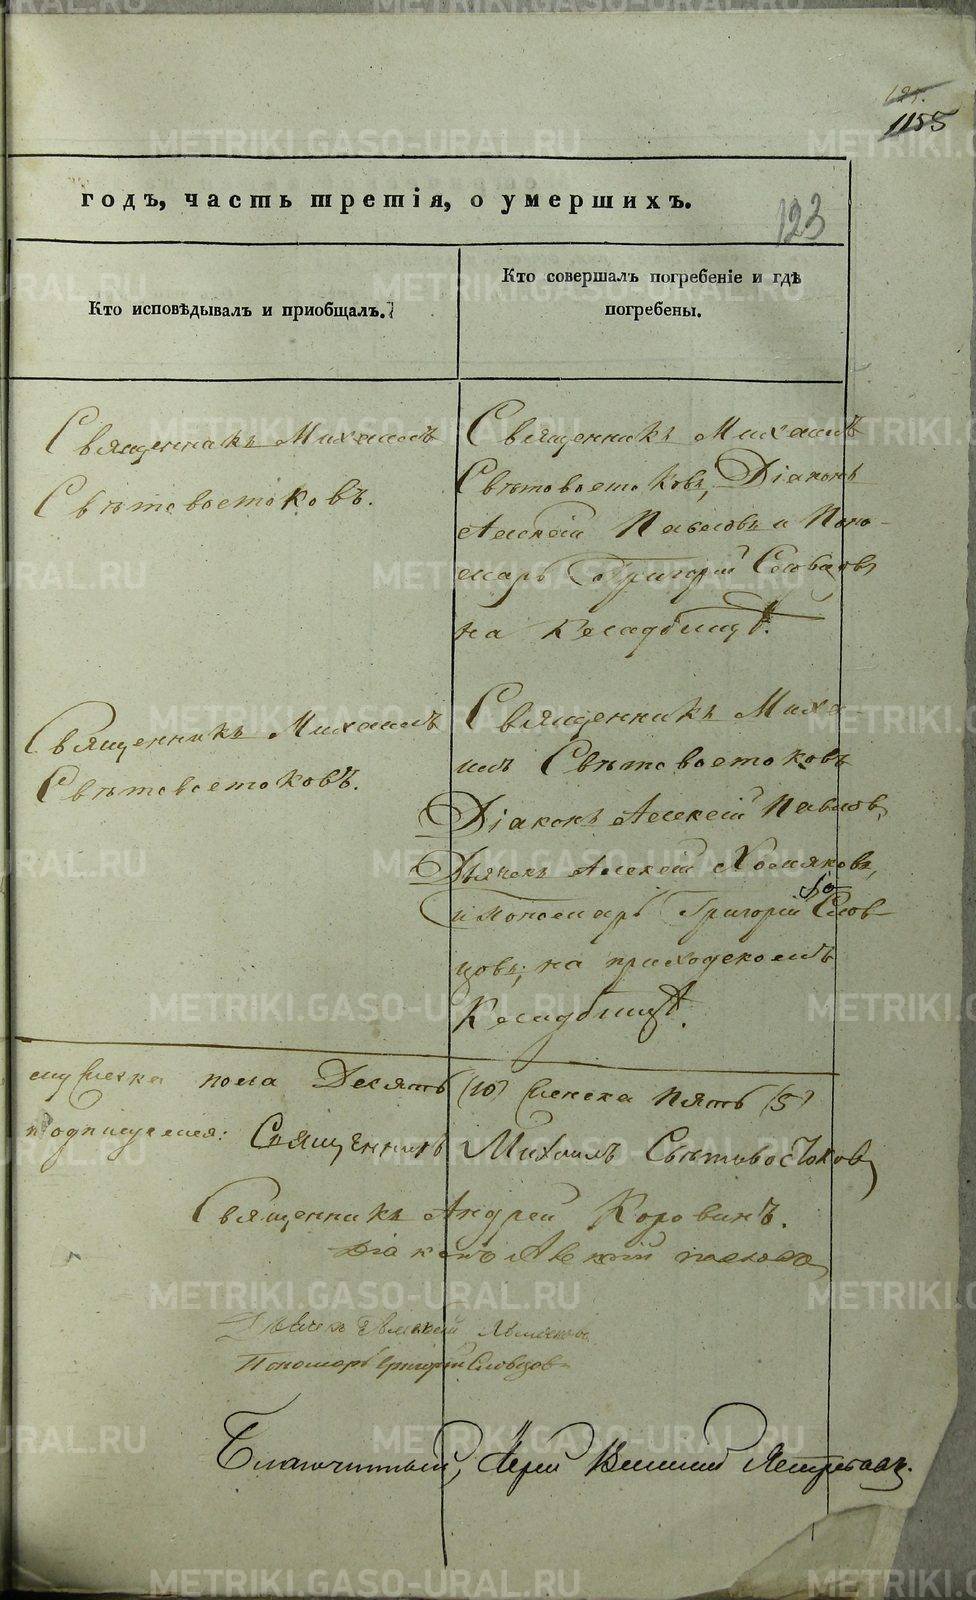 1155
123
годъ, часть третія, о умершихъ.
Кто исповѣдывалъ и приобщалъ.
Кто совершалъ погребеніе и гдѣ
погребены.
Священникъ Михаилъ
Свѣтовостоковъ.
Священникъ Михаилъ
Свѣтовостоковъ, Діаконъ
Алексій Павловъ и Поно-
марь Григорій Словцовъ
на Кладбищѣ.
Священникъ Михаилъ
Свѣтовостоковъ.
Священникъ Миха-
илъ Свѣтовостоковъ
Діаконъ Алексій Павловъ,
Дьячекъ Алексій Хомяковъ,
и Пономарь Григорій Слов-
цовъ; на приходскомъ
Кладбищѣ.
мужеска пола Десять (10) женска Пять (5)
подписуемся: Священникъ Михаилъ Свѣтовостоковъ
Священникъ Андрей Коровинъ.
Діаконъ Алексій Павловъ
Дьячекъ Алексій Хомяковъ
Пономарь Григорій Словцовъ
Благочинный, Іерей
METRIKI.GASO-URAL.RU